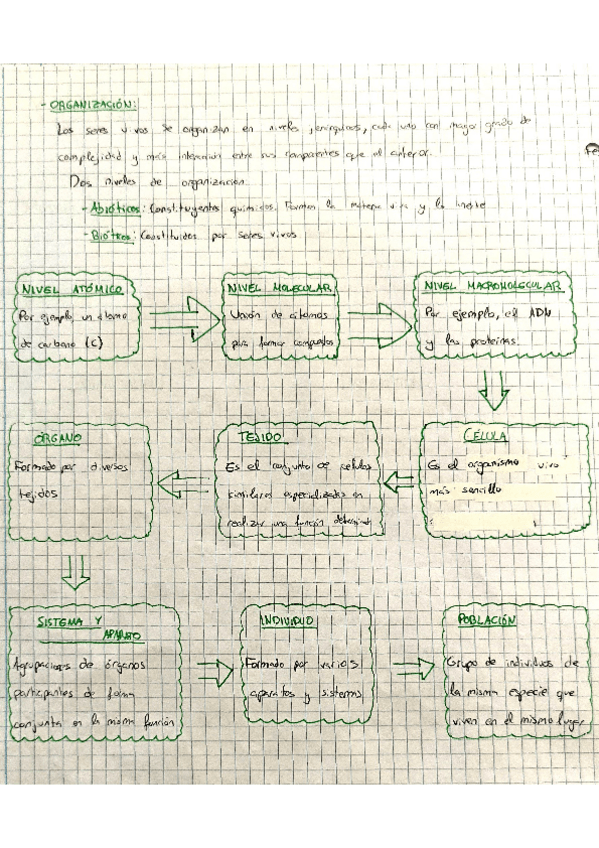 - ORGANIZACIÓN:
Los seres vivos se organizan en niveles jerárquicos, cada uno con mayor grado de
complejidad y más interacción entre sus componentes que el anterior.
Dos niveles de organización
- Abióticos: Constituyentes químicos. Forman la materia viva y la inerte
- Bióticos: Constituidos por seres vivos
NIVEL ATÓMICO
Por ejemplo, un átomo
de carbono (C)
NIVEL MOLECULAR
Unión de átomos
para formar compuestos
NIVEL MACROMOLECULAR
Por ejemplo, el ADN
y las proteínas.
CÉLULA
Es el organismo vivo
más sencillo
TEJIDO
Es el conjunto de células
similares especializadas en
realizar una función determinada
ÓRGANO
Formado por diversos
tejidos
SISTEMA Y
APARATO
Agrupaciones de órganos
participantes de forma
conjunta en la misma función
INDIVIDUO
Formado por varios
aparatos y sistemas
POBLACIÓN
Grupo de individuos de
la misma especie que
viven en el mismo lugar